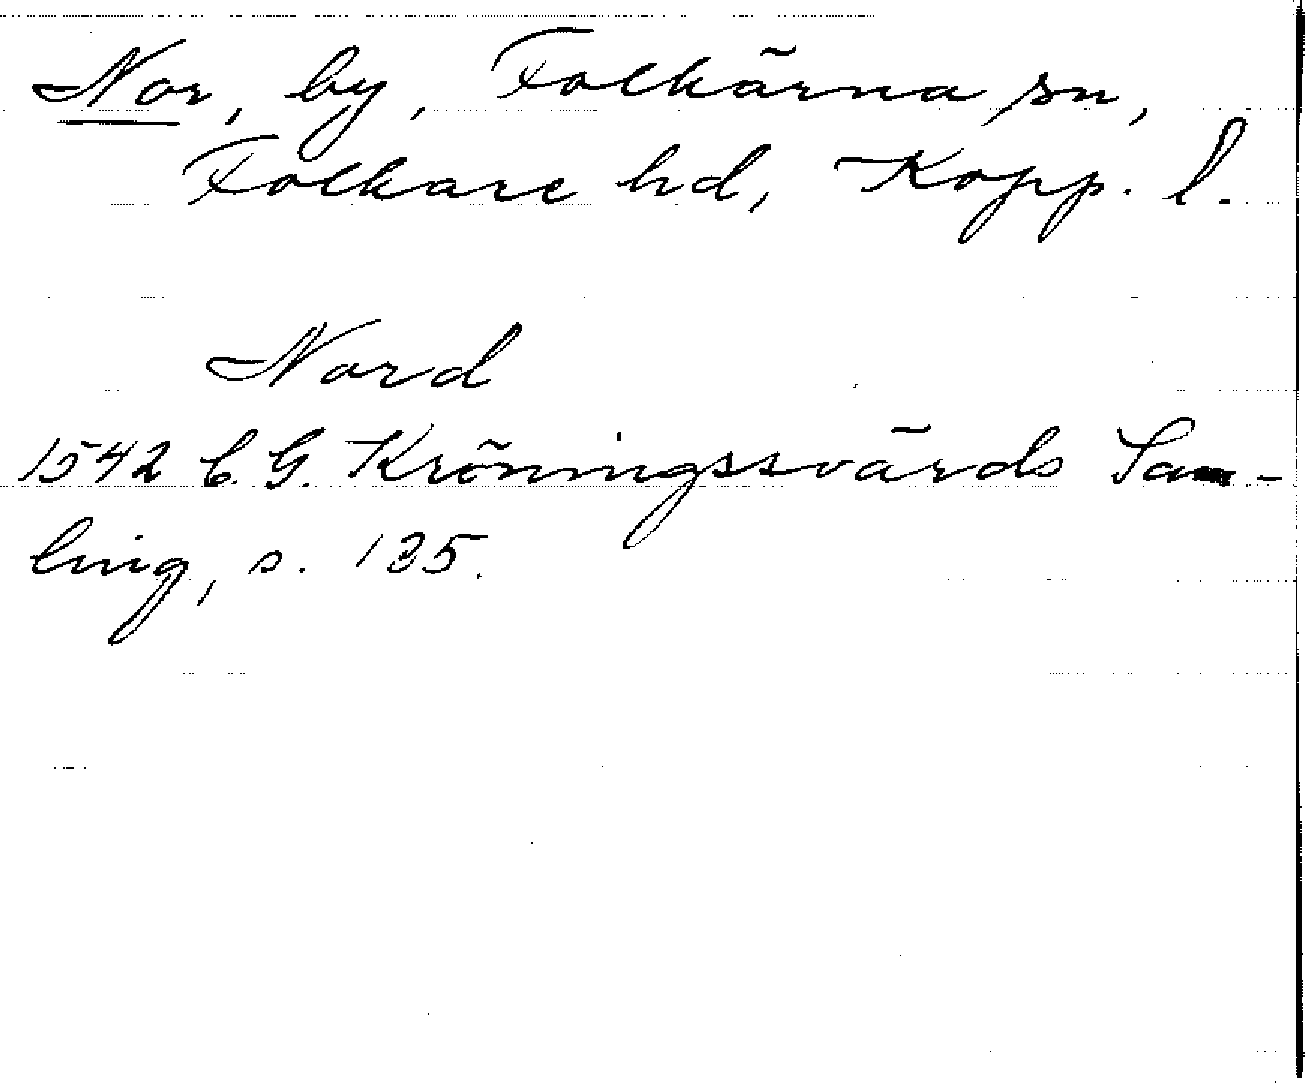 Nor, by, Folkärna sn,
Folkare hd, Kopp. l.
Nord
1542 C G. Kröningssvärds Sam-
ling, s. 135.